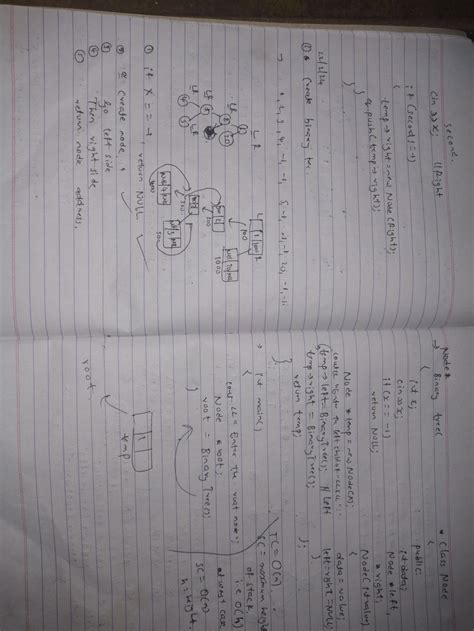 second.
cin >> x; // Right
if (second != -1)
{
temp → right = new Node (Right);
q.push (temp → right);
}
}
22/2/24
Create binary tree
→ 1, 2, 3, 4, -1, -1, 5, -1, -1, -1, 20, -1, -1
① if x == -1, return NULL
② Create node,
③ Go left side
④ Then right side
⑤ return node address.
Node*
→ Binary tree()
{
int x;
cin >> x;
if (x == -1)
return NULL;
Node * temp = new Node(x);
temp → left = Binary Tree(); // left
temp → right = Binary Tree();
return temp;
}
→ int main()
{
cout << Enter The root node:;
Node * root;
root = Binary Tree();
}
root
temp
* Class Node
{
public:
int data;
Node * left,
* right;
Node (int value)
{
data = value;
left = right = NULL;
}
TC = O(n)
SC = maximum height
of stack
i.e O(h)
at worst case
SC = O(n)
h = height.